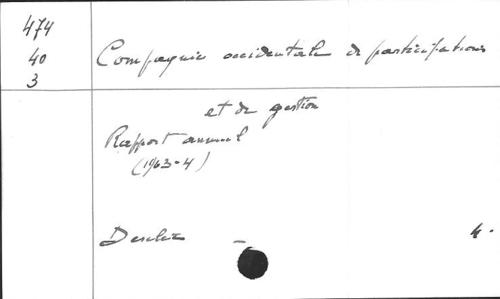 474
40
3
Compagnie occidentale de participations
et de gestion
Rapport annuel
(1963-4)
4.